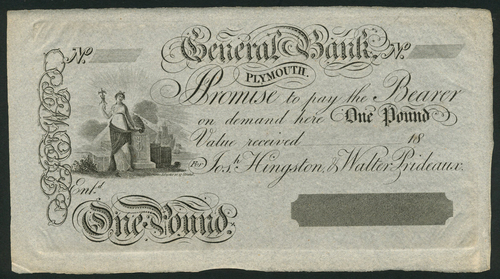 No.
General Bank.
No.
PLYMOUTH.
I Promise to pay the Bearer
on demand here One Pound
Value received 18
For Josh. Hingston, & Walter Prideaux.
Entd.
One Pound.